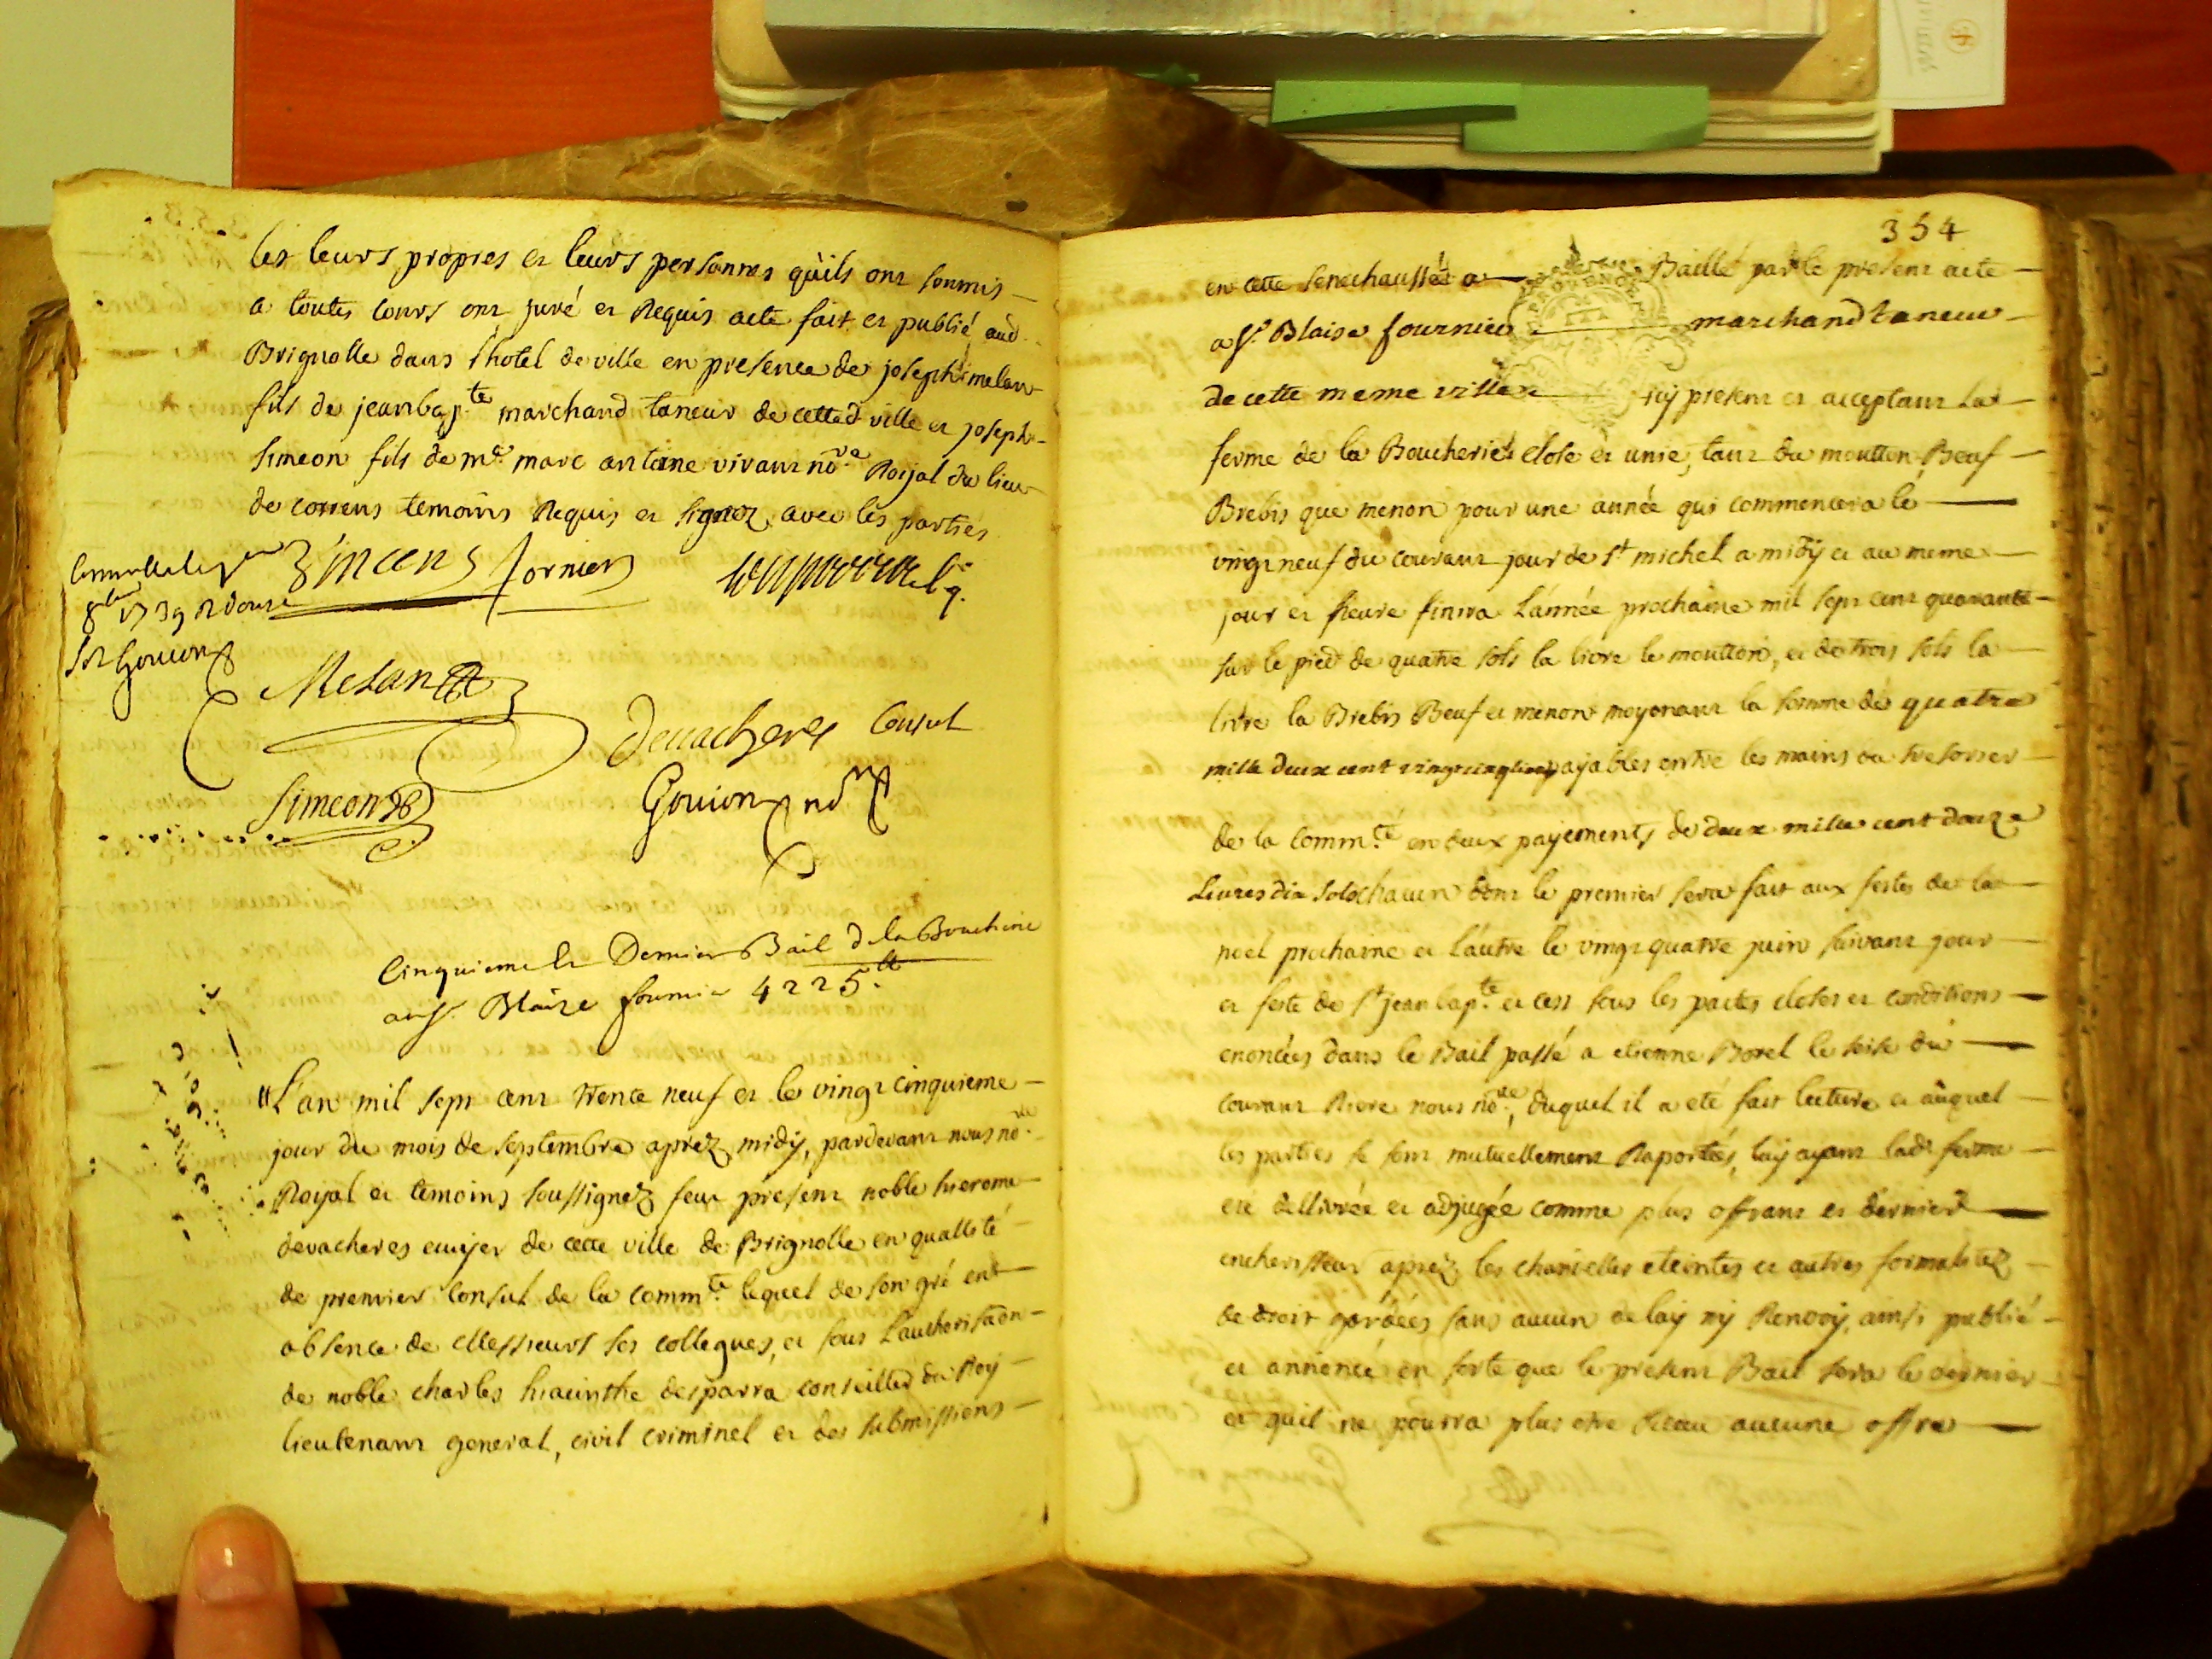 les leurs propres et leurs personnes quils ont soumis
a toutes cours ont juré et Requis acte fait et publié aud.
Brignolle dans l'hotel de ville en presence de joseph melan
fils de jean bap.te marchand taneur de cette d ville et joseph
Simeon fils de me. marc antoine vivant no.re Roijal du lieu
de correns temoins Requis et signez avec les parties
Vincens fornier
8bre 1739 R douze
sols Gouion
Melan
devacheres Consul
Simeon
Gouion no.re
Cinquieme et Dernier Bail de la Boucherie
au sr. Blaize fournier 4225 lt.
L'an mil sept cent trente neuf et le vingt cinquieme
jour du mois de septembre aprez midy, pardevant nous no.re
Roijal et temoins soussignez feut présent noble hierome
devacheres ecuijer de cette ville de Brignolle en quallité
de premier Consul de la comm.té lequel de son gré en
absence de Messieurs ses collegues, et sous L'authorisaon
de noble charles hiacinthe desparra conseiller du Roy
lieutenant general, civil criminel et des submissions
354
en cette senechaussée a Baillé par le present acte
a sr. Blaise fournier marchand taneur
de cette meme ville icy present et acceptant La
ferme de la Boucherie close et unie, tant du moutton Beuf
Brebis que menon pour une année qui commencera le
vingt neuf du courant jour de st michel a midÿ et au meme
jour et heure finira L'année prochaine mil sept cent quarante
sur le pied de quatre sols la livre le moutton, et de trois sols la
livre la Brebis Beuf et menon moyenant la somme de quatre
mille deux cent vingt cinq livres payables entre les mains du tresorier
de la comm.té en deux payements de deux mille cent douze
Livres dix sols chacun dont le premier sera fait aux festes de la
noel prochaine et L'autre le vingt quatre juin suivant jour
et feste de st jean bap.te et cest sous les pactes closes et conditions
enoncées dans le Bail passé a etienne Borel le seise du
courant Riere nous no.re, duquel il a eté fait lecture et auquel
les parties se sont mutuellement Raportés, luy ayant lad. ferme
eté dellivrée et adjugée comme plus offrant et dernier
encherisseur aprez les chandelles eteintes et autres formalitez
de droit gardées sans aucun delaij nij Renvoy, ainsi publié
et annoncé en sorte que le present Bail sera le dernier
et quil ne pourra plus etre Receu aucune offre